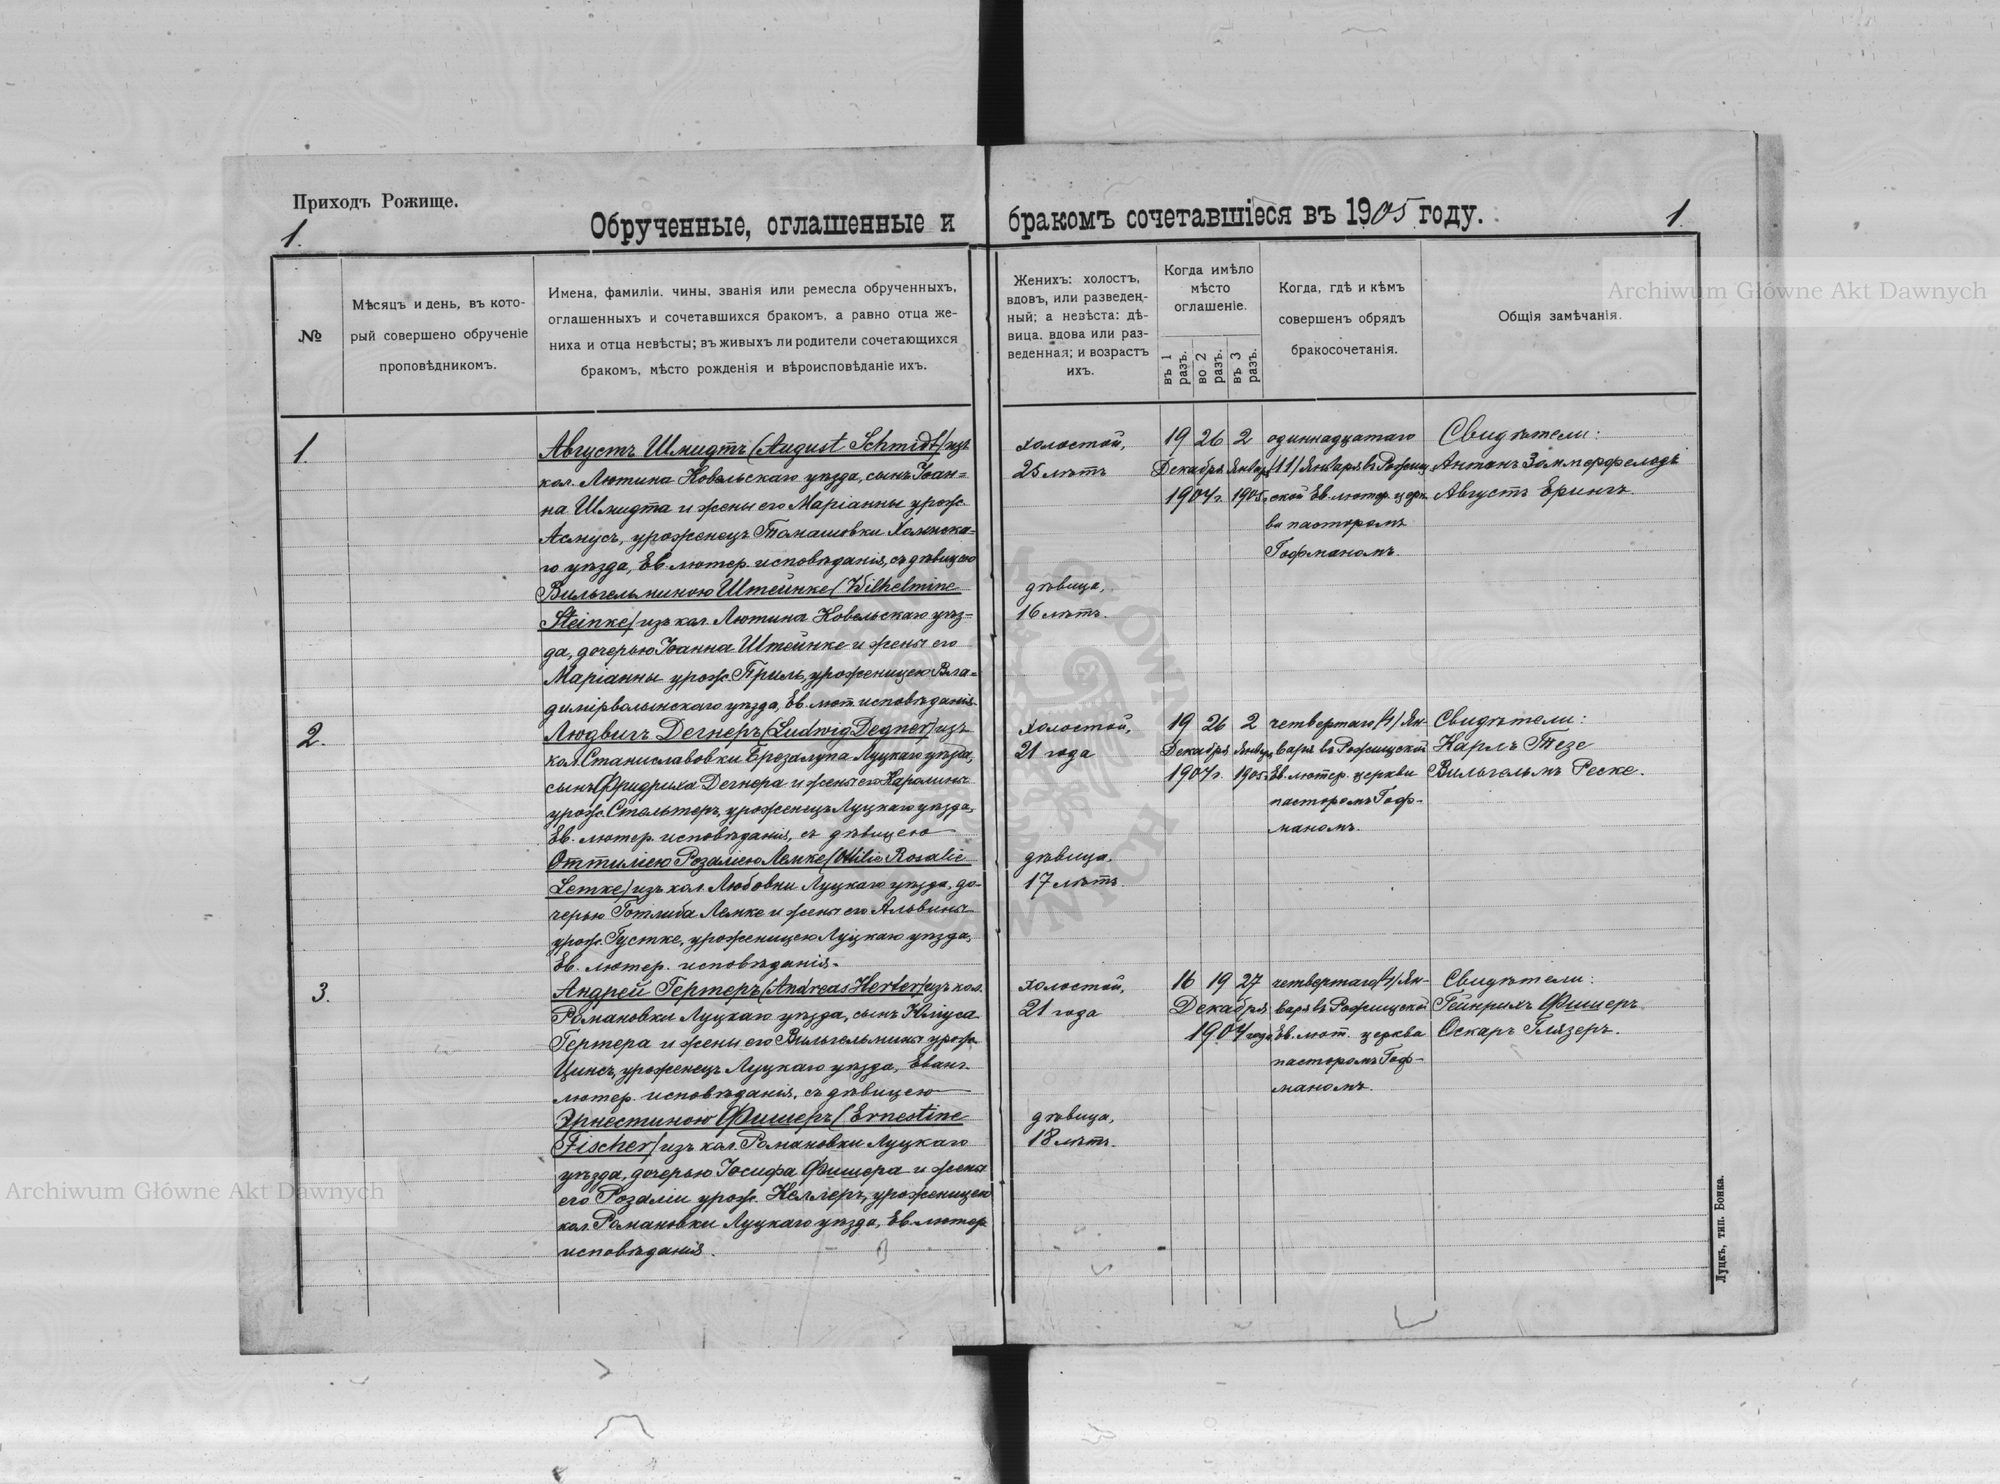 Приходъ Рожище.
1.
Обрученные, оглашенные и бракомъ сочетавшіеся въ 1905 году.
1.
№
Мѣсяцъ и день, въ кото-
рый совершено обрученіе
проповѣдникомъ.
Имена, фамиліи, чины, званія или ремесла обрученныхъ,
оглашенныхъ и сочетавшихся бракомъ, а равно отца же-
ниха и отца невѣсты; въ живыхъ ли родители сочетающихся
бракомъ, мѣсто рожденія и вѣроисповѣданіе ихъ.
Женихъ: холостъ,
вдовъ, или разведен-
ный; а невѣста: дѣ-
вица, вдова или раз-
веденная; и возрастъ
ихъ.
Когда имѣло
мѣсто
оглашеніе.
въ 1 разъ.
во 2 разъ.
въ 3 разъ.
Когда, гдѣ и кѣмъ
совершенъ обрядъ
бракосочетанія.
Общія замѣчанія.
1.
Августъ Шмидтъ (August Schmidt) изъ
кол. Лютина Ковельскаго уѣзда, сынъ Іоан-
на Шмидта и жены его Маріанны урож.
Асмусъ, уроженецъ Томашовки Холмска-
го уѣзда, Ев. лютер. исповѣданія, съ дѣвицею
Вильгельминою Штейнке (Wilhelmine
Steinke) изъ кол. Лютина Ковельскаго уѣз-
да, дочерью Іоанна Штейнке и жены его
Маріанны урож. Приль, уроженицею Вла-
димірволынскаго уѣзда, Ев. лют. исповѣданія.
холостой,
25 лѣтъ
дѣвица,
16 лѣтъ.
19 26 2
Декабря Января
1904 г. 1905 г.
одиннадцатаго
(11) Января въ Рожищ
ской Ев. лютер. церк
ви пасторомъ
Гофманомъ.
Свидѣтели:
Антонъ Зоммерфельдъ
Августъ Ерингъ.
2.
Людвигъ Дегнеръ (Ludwig Degner) изъ
кол. Станиславовки Березалупа Луцкаго уѣзда,
сынъ Фридриха Дегнера и жены его Каролины
урож. Стельтеръ, уроженецъ Луцкаго уѣзда,
Ев. лютер. исповѣданія, съ дѣвицею
Оттиліею Розаліею Лемке (Ottilie Rosalie
Lemke) изъ кол. Любовки Луцкаго уѣзда, до-
черью Готлиба Лемке и жены его Альвины
урож. Густке, уроженицею Луцкаго уѣзда,
Ев. лютер. исповѣданія.
холостой,
21 года
дѣвица,
17 лѣтъ.
19 26 2
Декабря Января
1904 г. 1905 г.
четвертаго (4) Ян-
варя въ Рожищской
Ев. лютер. церкви
пасторомъ Гоф-
маномъ.
Свидѣтели:
Карлъ Тезе
Вильгельмъ Реске.
3.
Андрей Гертеръ (Andreas Herter) изъ кол.
Романовки Луцкаго уѣзда, сынъ Юліуса
Гертера и жены его Вильгельмины урож.
Цинсъ, уроженецъ Луцкаго уѣзда, Еванг.
лютер. исповѣданія, съ дѣвицею
Эрнестиною Фишеръ (Ernestine
Fischer) изъ кол. Романовки Луцкаго
уѣзда, дочерью Іосифа Фишера и жены
его Розаліи урож. Келлеръ, уроженицею
кол. Романовки Луцкаго уѣзда, Ев. лютер.
исповѣданія.
холостой,
21 года
дѣвица,
18 лѣтъ.
16 19 27
Декабря
1904 года
четвертаго (4) Ян-
варя въ Рожищской
Ев. лют. церкви
пасторомъ Гоф-
маномъ.
Свидѣтели:
Гейнрихъ Фишеръ
Оскаръ Глязеръ.
Луцкъ, тип. Бонка.
Archiwum Główne Akt Dawnych
Archiwum Główne Akt Dawnych